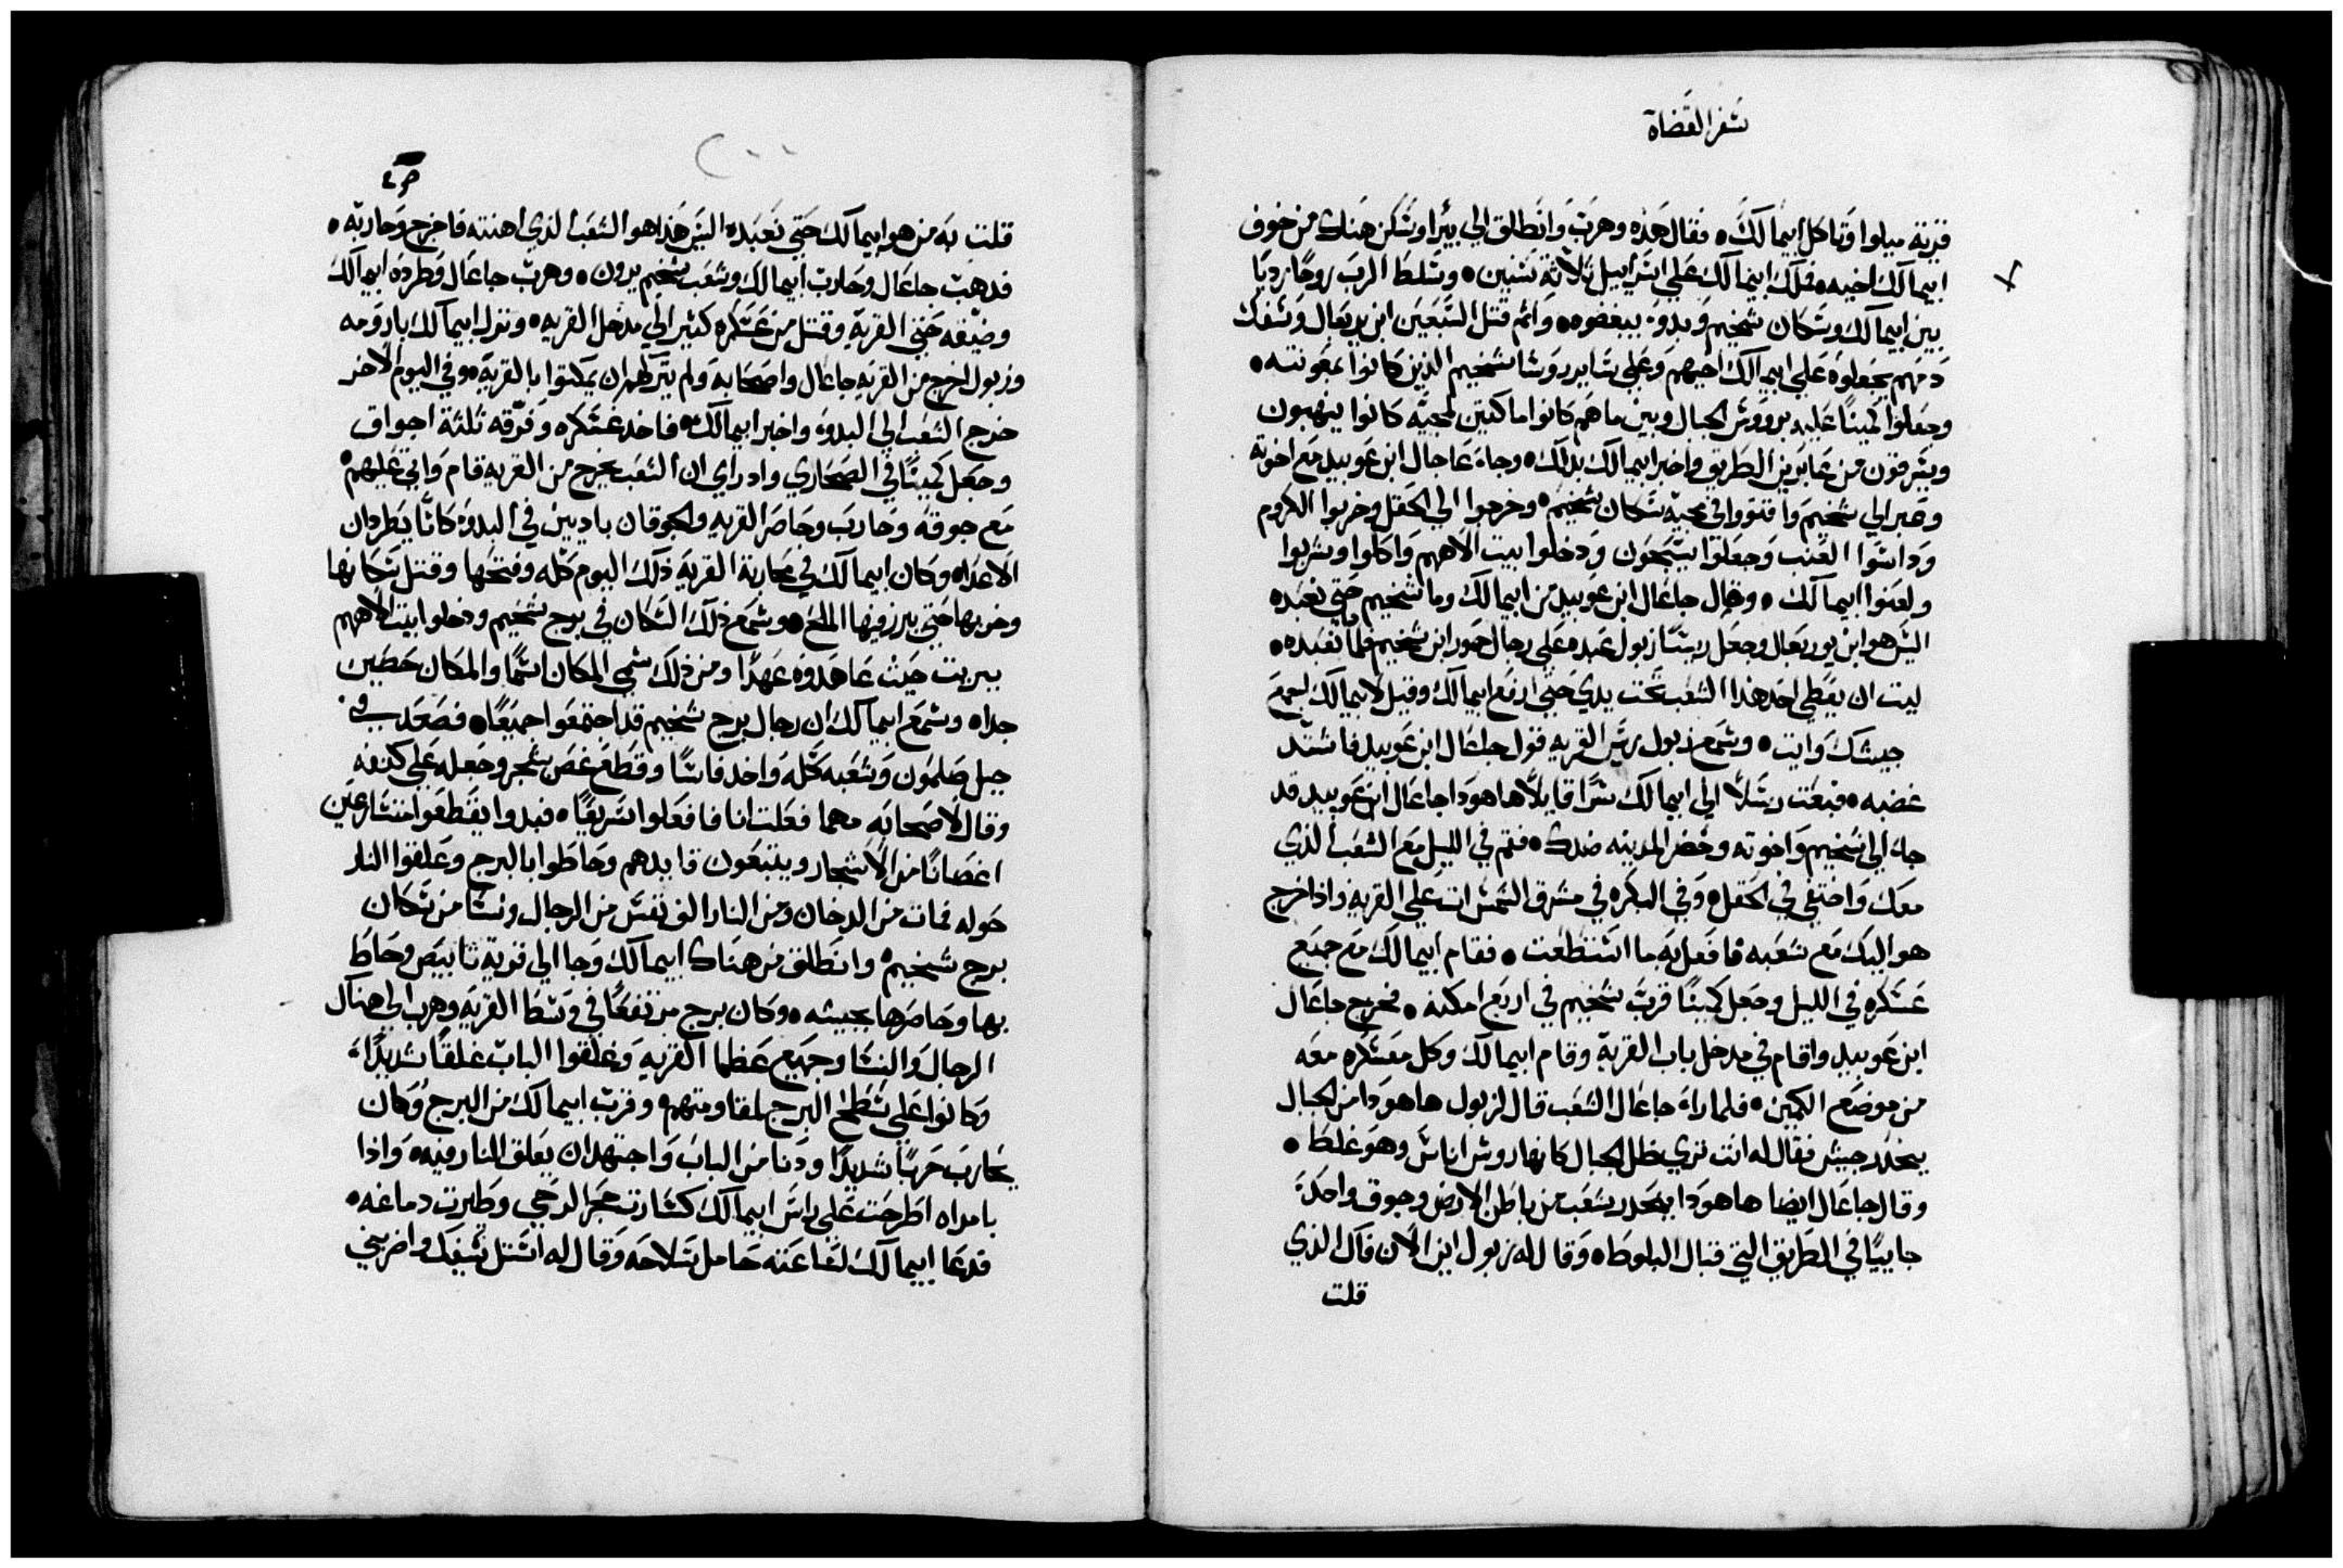 سفر القضاة
قرية ميلوا وتاكل ابيمالك ٠ فقال هذه وهرب وانطلق الي بيرا وسكن هناك من خوف
ابيمالك اخيه ٠ فملك ابيمالك علي اسراييل ثلاثة سنين ٠ وسلط الرب روحًا رديا
بين ابيمالك وسكان شخيم وبدو يبغضوه ٠ واثم قتل السبعين ابن يربعال وسفك
دمهم يجعلوه علي ابيمالك اخيهم وعلي ساير روسا شخيم الذين كانوا بمعونته ٠
وجعلوا كمينًا عليه بروس الجبال وبين ما هم كانوا ماكثين لمجيه كانوا ينهبون
ويسرقون من عابرين الطريق واخبر ابيمالك بذلك ٠ وجاء عاجال ابن عوبيد مع اخوته
وعبر الي شخيم واقتووا في مجيه سكان شخيم ٠ وخرجوا الي الحقل وخربوا الكروم
وداسوا العنب وجعلوا يسبحون ودخلوا بيت الاههم واكلوا وشربوا
ولعنوا ابيمالك ٠ وقال جاعال ابن عوبيد من ابيمالك وما شخيم حتي نعبده
اليس هو ابن يوربعال وجعل ريسًا زبول عبده علي رجال حمور ابن شخيم فلماذا نعبده ٠
ليت ان يعطي احد هذا الشعب تحت يدي حتي ارفع ابيمالك وقيل لابيمالك اجمع
جيشك وايت ٠ وسمع زبول ريس القريه قول جاعال ابن عوبيد فاشتد
غضبه ٠ فبعث رسلًا الي ابيمالك سرًا قايلًا ها هودا جاعال ابن عوبيد قد
جاء الي شخيم واخوته وحضر المدينه ضدك ٠ فقم في الليل مع الشعب الذي
معك واختفي في الحقل ٠ وفي البكره في مشرق الشمس ات علي القريه واذا خرج
هو اليك مع شعبه فافعل به ما استطعت ٠ فقام ابيمالك مع جميع
عسكره في الليل وجعل كمينًا قرب شخيم في اربع امكنه ٠ فخرج جاعال
ابن عوبيد واقام في مدخل باب القرية وقام ابيمالك وكل معسكره معه
من موضع الكمين ٠ فلما راء جاعال الشعب قال لزبول ها هودا من الجبال
ينحدر جيش فقال له انت تري ظل الجبال كانها روس اناس وهو غلط ٠
وقال جاعال ايضا ها هودا ينحدر شعب من باطن الارض وجوق واحد
جاييًا في الطريق التي قبال البلوطه ٠ وقال له زبول اين الان فاك الذي
قلت
قلت به من هو ابيمالك حتي نعبده اليس هذا هو الشعب الذي اهنته فاخرج وحاربه ٠
فذهب جاعال وحارب ابيمالك وشعب شخيم يرون ٠ وهرب جاعال وطرده ابيمالك
وضيقه حتي القرية وقتل من عسكره كثير الي مدخل القريه ٠ ونزل ابيمالك باروما
وزبول اخرج من القريه جاعال واصحابه ولم يتركهم ان يمكثوا بالقرية ٠ وفي اليوم الاخر
خرج الشعب الي البدو واخبر ابيمالك ٠ فاخذ عسكره وفرقه ثلثة اجواق
وجعل كمينًا في الصحاري واد راي ان الشعب يخرج من القريه قام واتي عليهم ٠
مع جوقه وحارب وحاصر القريه والجوقان باديين في البدو كانا يطردان
الاعداء وكان ابيمالك في محاربة القرية ذلك اليوم كله وفتحها وقتل سكانها
وخربها حتي بزر فيها الملح ٠ وسمع ذلك السكان في برج شخيم ودخلوا بيت الاههم
بيريت حيث عاهدوه عهدًا ومن ذلك سمي المكان اسمًا والمكان حصين
جدا ٠ وسمع ابيمالك ان رجال برج شخيم قد اجتمعوا جميعًا ٠ فصعد في
جبل صلمون وشعبه كله واخد فاسًا وقطع غصن شجر وجعله علي كتفه
وقال لاصحابه مهما فعلت انا فافعلوا سريعًا ٠ فبدوا يقطعوا متسارعين
اغصانًا من الاشجار ويتبعون قايدهم وحاطوا بالبرج وعلقوا النار
حوله فمات من الدخان ومن النار الف نفس من الرجال ونسا من سكان
برج شخيم ٠ وانطلق من هناك ابيمالك وجا الي قرية ثابيص وحاط
بها وحاصرها بجيشه ٠ وكان برج مرتفعًا في وسط القرية وهرب الي هناك
الرجال والنسا وجميع عظما القريه وغلقوا الباب غلقًا شديدًا ٠
وكانوا علي سطح البرج ملقاومتهم ٠ وقرب ابيمالك من البرج وكان
يحارب حربًا شديدًا ودنا من الباب واجتهد ان يعلق النار فيه ٠ واذا
بامراه اطرحت علي راس ابيمالك كسارت حجر الرحي وطيرت دماغه ٠
فدعا ابيمالك لساعته حامل سلاحه وقال له استل سيفك واضربني